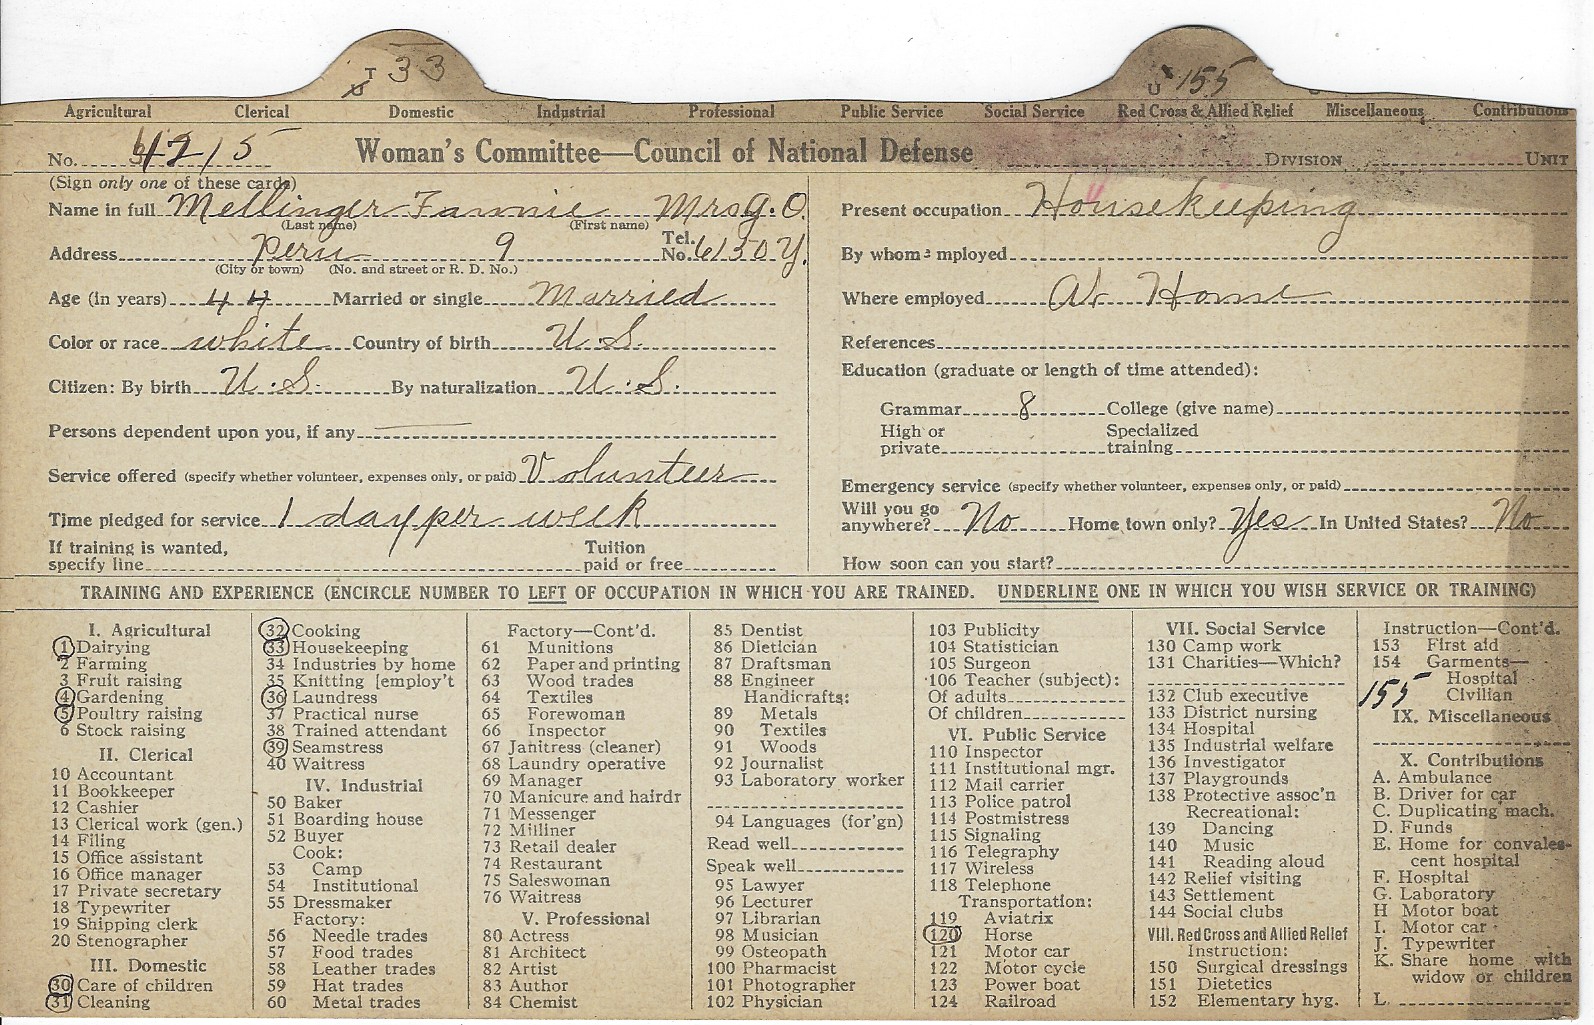 T 33
U 155
Agricultural Clerical Domestic Industrial Professional Public Service Social Service Red Cross & Allied Relief Miscellaneous Contributions
No. 4215 Woman's Committee—Council of National Defense DIVISION UNIT
(Sign only one of these cards)
Name in full Mellinger Fannie Mrs G. O.
(Last name) (First name)
Address Peru 9 Tel. No. 6130Y.
(City or town) (No. and street or R. D. No.)
Age (in years) 44 Married or single Married
Color or race white Country of birth U.S.
Citizen: By birth U.S. By naturalization U.S.
Persons dependent upon you, if any
Service offered (specify whether volunteer, expenses only, or paid) Volunteer
Time pledged for service 1 day per week
If training is wanted, specify line Tuition paid or free
Present occupation Housekeeping
By whom employed
Where employed At Home
References
Education (graduate or length of time attended):
Grammar 8 College (give name)
High or private Specialized training
Emergency service (specify whether volunteer, expenses only, or paid)
Will you go anywhere? No Home town only? Yes In United States? No
How soon can you start?
TRAINING AND EXPERIENCE (ENCIRCLE NUMBER TO LEFT OF OCCUPATION IN WHICH YOU ARE TRAINED. UNDERLINE ONE IN WHICH YOU WISH SERVICE OR TRAINING)
I. Agricultural
1 Dairying
2 Farming
3 Fruit raising
4 Gardening
5 Poultry raising
6 Stock raising
II. Clerical
10 Accountant
11 Bookkeeper
12 Cashier
13 Clerical work (gen.)
14 Filing
15 Office assistant
16 Office manager
17 Private secretary
18 Typewriter
19 Shipping clerk
20 Stenographer
III. Domestic
30 Care of children
31 Cleaning
32 Cooking
33 Housekeeping
34 Industries by home
35 Knitting [employ't
36 Laundress
37 Practical nurse
38 Trained attendant
39 Seamstress
40 Waitress
IV. Industrial
50 Baker
51 Boarding house
52 Buyer
Cook:
53 Camp
54 Institutional
55 Dressmaker
Factory:
56 Needle trades
57 Food trades
58 Leather trades
59 Hat trades
60 Metal trades
Factory—Cont'd.
61 Munitions
62 Paper and printing
63 Wood trades
64 Textiles
65 Forewoman
66 Inspector
67 Janitress (cleaner)
68 Laundry operative
69 Manager
70 Manicure and hairdr
71 Messenger
72 Milliner
73 Retail dealer
74 Restaurant
75 Saleswoman
76 Waitress
V. Professional
80 Actress
81 Architect
82 Artist
83 Author
84 Chemist
85 Dentist
86 Dietician
87 Draftsman
88 Engineer
Handicrafts:
89 Metals
90 Textiles
91 Woods
92 Journalist
93 Laboratory worker
94 Languages (for'gn)
Read well
Speak well
95 Lawyer
96 Lecturer
97 Librarian
98 Musician
99 Osteopath
100 Pharmacist
101 Photographer
102 Physician
103 Publicity
104 Statistician
105 Surgeon
106 Teacher (subject):
Of adults
Of children
VI. Public Service
110 Inspector
111 Institutional mgr.
112 Mail carrier
113 Police patrol
114 Postmistress
115 Signaling
116 Telegraphy
117 Wireless
118 Telephone
Transportation:
119 Aviatrix
120 Horse
121 Motor car
122 Motor cycle
123 Power boat
124 Railroad
VII. Social Service
130 Camp work
131 Charities—Which?
132 Club executive
133 District nursing
134 Hospital
135 Industrial welfare
136 Investigator
137 Playgrounds
138 Protective assoc'n
Recreational:
139 Dancing
140 Music
141 Reading aloud
142 Relief visiting
143 Settlement
144 Social clubs
VIII. Red Cross and Allied Relief
Instruction:
150 Surgical dressings
151 Dietetics
152 Elementary hyg.
Instruction—Cont'd.
153 First aid
154 Garments—
Hospital
155 Civilian
IX. Miscellaneous
X. Contributions
A. Ambulance
B. Driver for car
C. Duplicating mach.
D. Funds
E. Home for convalescent hospital
F. Hospital
G. Laboratory
H Motor boat
I. Motor car
J. Typewriter
K. Share home with widow or children
L.